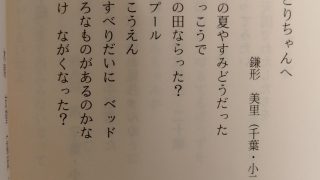 とりちゃんへ
鎌形 美里(千葉・小二
の夏やすみどうだった
っこうで
の田ならった?
プール
こうえん
すべりだいに ベッド
ろなものがあるのかな
け ながくなった?